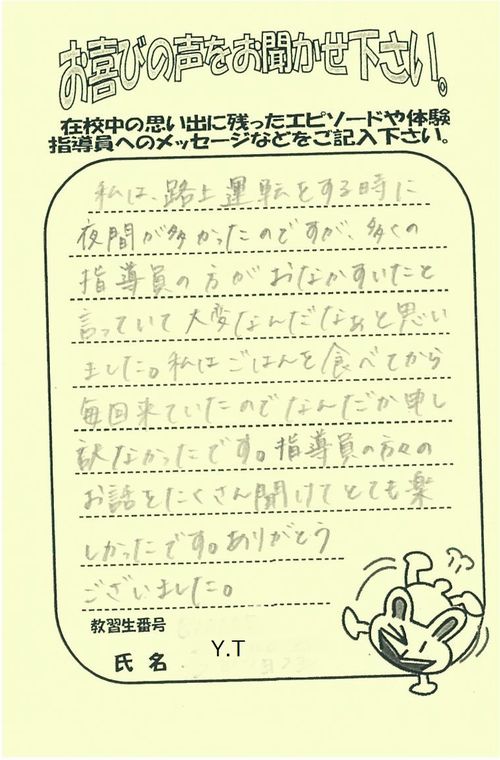 お喜びの声をお聞かせ下さい。
在校中の思い出に残ったエピソードや体験
指導員へのメッセージなどをご記入下さい。
私は、路上運転をする時に
夜間が多かったのですが、多くの
指導員の方がおなかすいたと
言っていて大変なんだなぁと思い
ました。私はごはんを食べてから
毎回来ていたのでなんだか申し
訳なかったです。指導員の方々の
お話をたくさん聞けてとても楽
しかったです。ありがとう
ございました。
教習生番号
氏名 Y.T